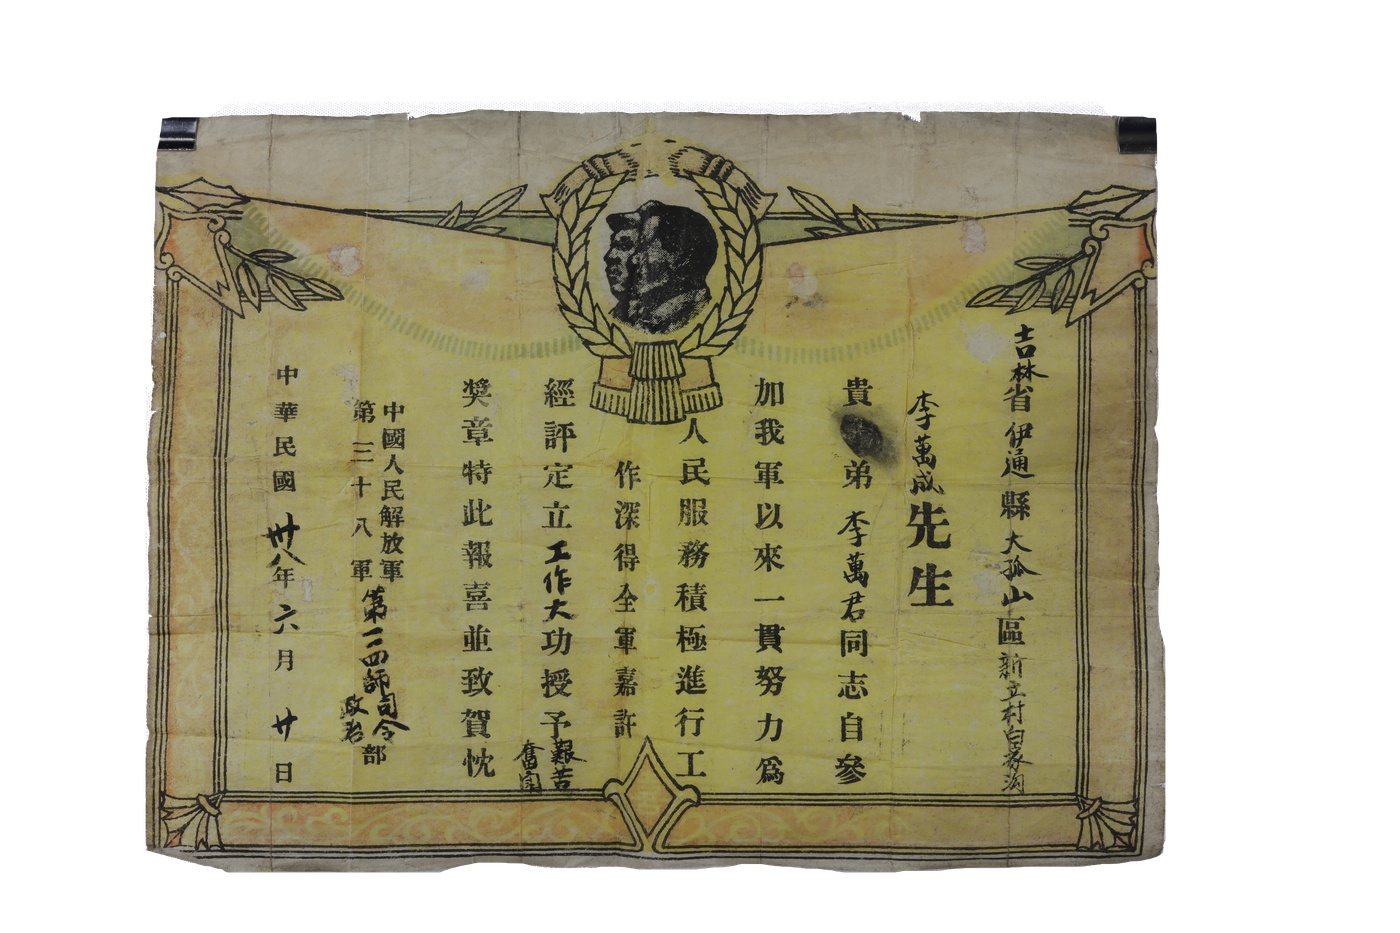 吉林省伊通縣大孤山區新立村白家溝
李萬成先生
貴弟李萬君同志自參
加我軍以來一貫努力爲
人民服務積極進行工
作深得全軍嘉許
經評定立工作大功授予艱苦
奮鬥
獎章特此報喜並致賀忱
中國人民解放軍
第三十八軍
第一一四師司令
政治部
中華民國卅八年六月廿日